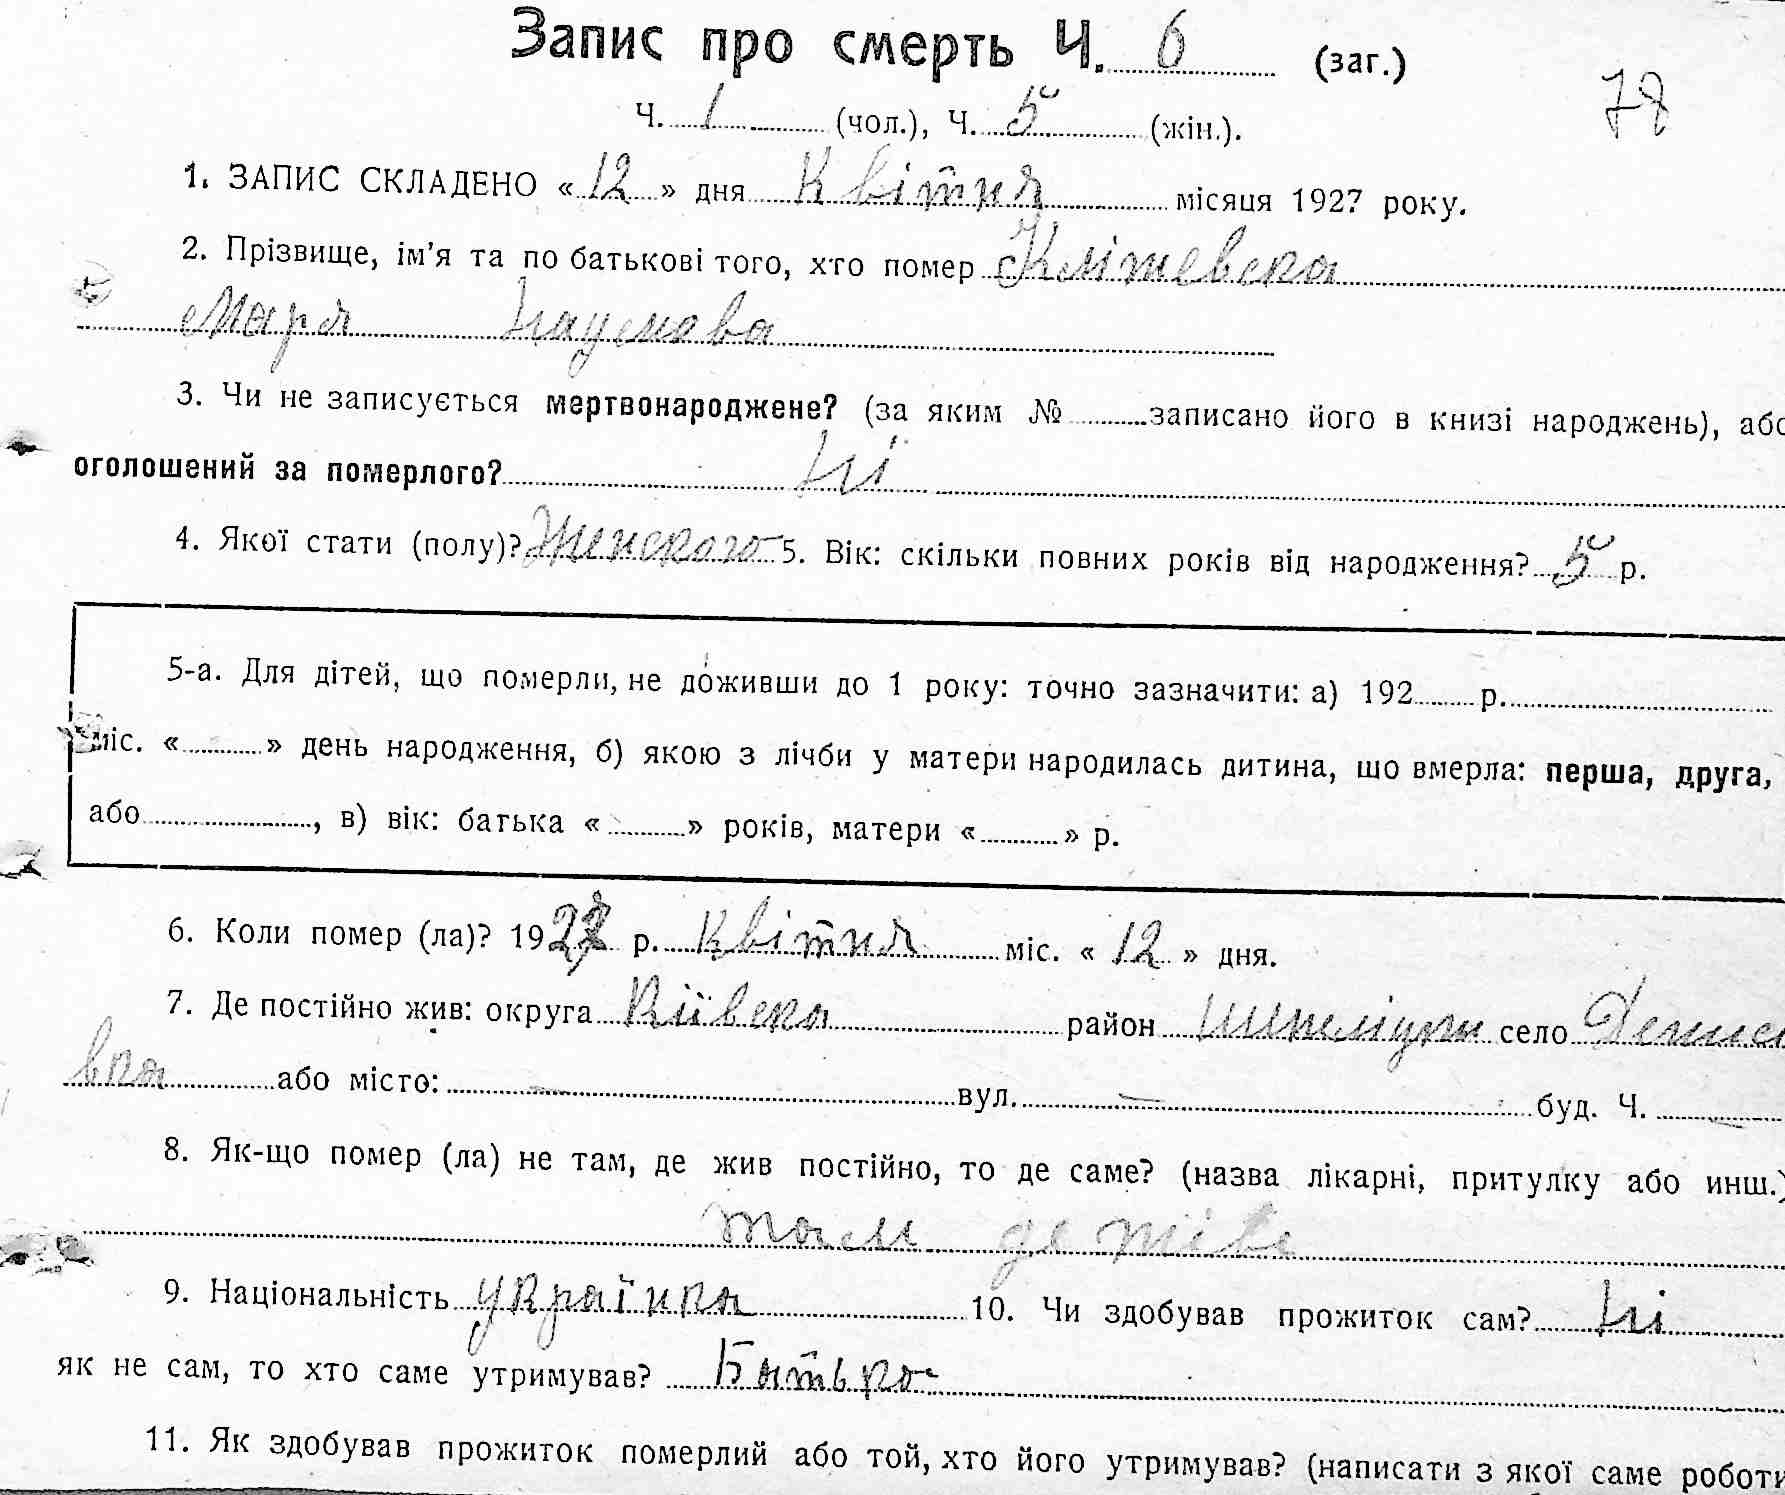 Запис про смерть Ч. 6 (заг.)
78
Ч. 1 (чол.), Ч. 5 (жін.).
1. ЗАПИС СКЛАДЕНО « 12 » дня Квітня місяця 1927 року.
2. Прізвище, ім'я та по батькові того, хто помер Клітевска
Маря Наумова
3. Чи не записується мертвонароджене? (за яким № записано його в книзі народжень), або
оголошений за померлого? Ні
4. Якої стати (полу)? Женского 5. Вік: скільки повних років від народження? 5 р.
5-а. Для дітей, що померли, не доживши до 1 року: точно зазначити: а) 192 р.
міс. « » день народження, б) якою з лічби у матери народилась дитина, що вмерла: перша, друга,
або , в) вік: батька « » років, матери « » р.
6. Коли помер (ла)? 1927 р. Квітня міс. « 12 » дня.
7. Де постійно жив: округа Київска район село
вка або місто: — вул. — буд. Ч. —
8. Як-що помер (ла) не там, де жив постійно, то де саме? (назва лікарні, притулку або инш.)
там де живе
9. Національність українка 10. Чи здобував прожиток сам? Ні
як не сам, то хто саме утримував? Батько
11. Як здобував прожиток померлий або той, хто його утримував? (написати з якої саме роботи